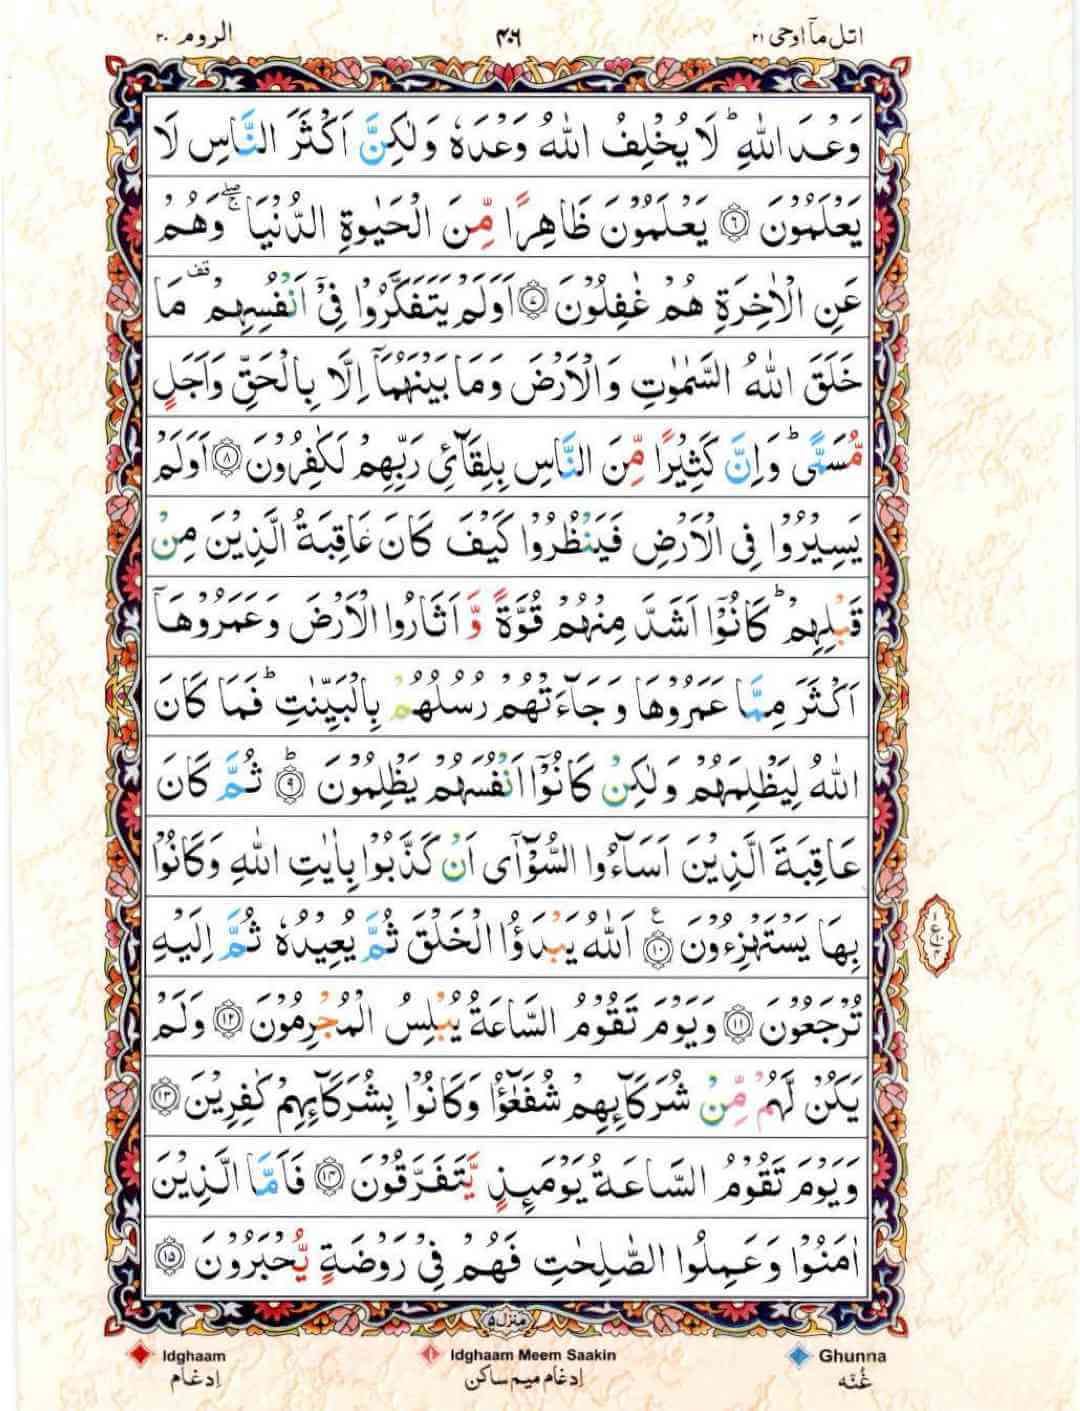 اتل مآ اوحی ۲۱
۴۰۶
الروم ۳۰
وَعْدَ اللّٰهِ ؕ لَا يُخْلِفُ اللّٰهُ وَعْدَهٗ وَلٰكِنَّ اَكْثَرَ النَّاسِ لَا
يَعْلَمُوْنَ ۝۶ يَعْلَمُوْنَ ظَاهِرًا مِّنَ الْحَيٰوةِ الدُّنْيَا ۖۚ وَهُمْ
عَنِ الْاٰخِرَةِ هُمْ غٰفِلُوْنَ ۝۷ اَوَلَمْ يَتَفَكَّرُوْا فِيْۤ اَنْفُسِهِمْ قف مَا
خَلَقَ اللّٰهُ السَّمٰوٰتِ وَالْاَرْضَ وَمَا بَيْنَهُمَاۤ اِلَّا بِالْحَقِّ وَاَجَلٍ
مُّسَمًّى ؕ وَاِنَّ كَثِيْرًا مِّنَ النَّاسِ بِلِقَآئِ رَبِّهِمْ لَكٰفِرُوْنَ ۝۸ اَوَلَمْ
يَسِيْرُوْا فِى الْاَرْضِ فَيَنْظُرُوْا كَيْفَ كَانَ عَاقِبَةُ الَّذِيْنَ مِنْ
قَبْلِهِمْ ؕ كَانُوْۤا اَشَدَّ مِنْهُمْ قُوَّةً وَّاَثَارُوا الْاَرْضَ وَعَمَرُوْهَاۤ
اَكْثَرَ مِمَّا عَمَرُوْهَا وَجَآءَتْهُمْ رُسُلُهُمْ بِالْبَيِّنٰتِ ؕ فَمَا كَانَ
اللّٰهُ لِيَظْلِمَهُمْ وَلٰكِنْ كَانُوْۤا اَنْفُسَهُمْ يَظْلِمُوْنَ ؕ ۝۹ ثُمَّ كَانَ
عَاقِبَةَ الَّذِيْنَ اَسَآءُوا السُّوْٓاٰۤى اَنْ كَذَّبُوْا بِاٰيٰتِ اللّٰهِ وَكَانُوْا
بِهَا يَسْتَهْزِءُوْنَ ۝۱۰ ع اَللّٰهُ يَبْدَؤُا الْخَلْقَ ثُمَّ يُعِيْدُهٗ ثُمَّ اِلَيْهِ
تُرْجَعُوْنَ ۝۱۱ وَيَوْمَ تَقُوْمُ السَّاعَةُ يُبْلِسُ الْمُجْرِمُوْنَ ۝۱۲ وَلَمْ
يَكُنْ لَّهُمْ مِّنْ شُرَكَآئِهِمْ شُفَعٰٓؤُا وَكَانُوْا بِشُرَكَآئِهِمْ كٰفِرِيْنَ ۝۱۳
وَيَوْمَ تَقُوْمُ السَّاعَةُ يَوْمَئِذٍ يَّتَفَرَّقُوْنَ ۝۱۴ فَاَمَّا الَّذِيْنَ
اٰمَنُوْا وَعَمِلُوا الصّٰلِحٰتِ فَهُمْ فِيْ رَوْضَةٍ يُّحْبَرُوْنَ ۝۱۵
منزل ۵
Idghaam
Idghaam Meem Saakin
Ghunna
اِدغام
اِدغام میم ساکن
غُنّه